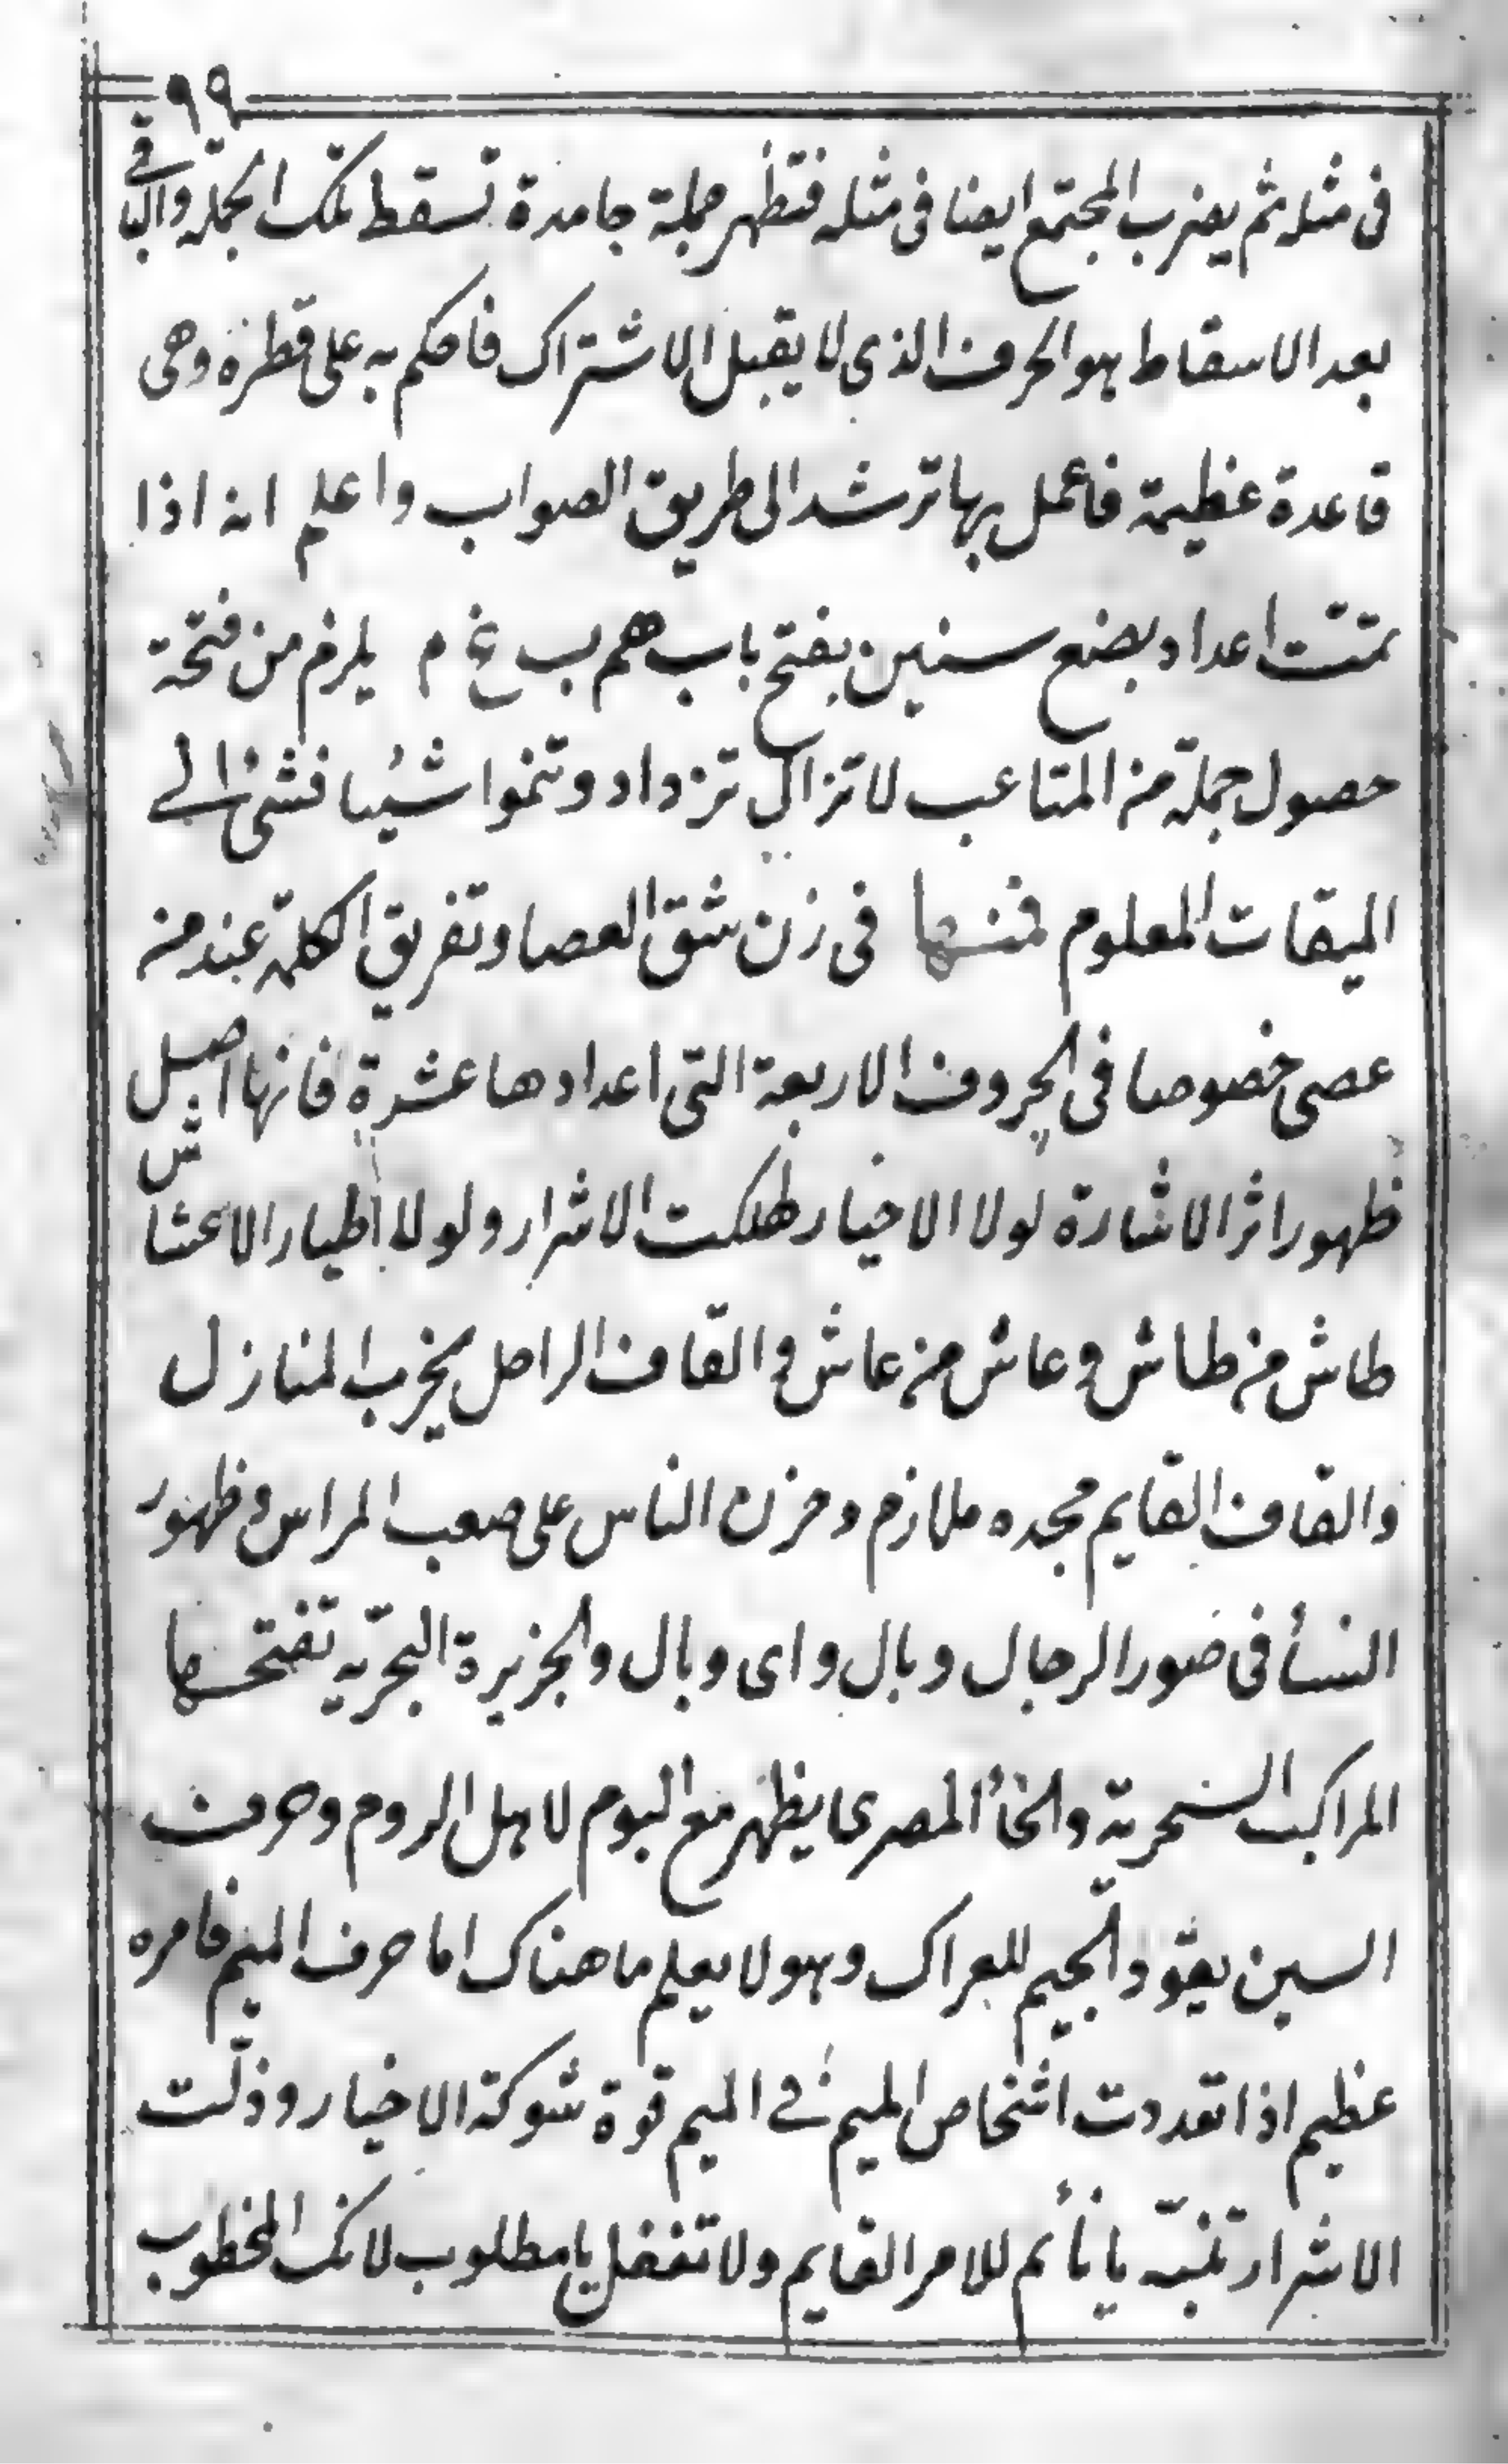 ٩٩
فى مثله ثم يضرب المجتمع ايضا فى مثله فتظهر جملة جامدة تسقط تلك الجملة والباقى
بعد الاسقاط هو الحرف الذى لا يقبل الاشتراك فاحكم به على قطره وهى
قاعدة عظيمة فاعمل بها ترشد الى طريق الصواب واعلم انه اذا
تمت اعداد بضع سنين يفتح باب هم ب غ م يلزم من فتحة
حصول جملة من المتاعب لا تزال تزداد وتنموا شيئا فشئ الى
الميقات المعلوم فمنها فى زن شق العصا وتفريق الكلمة عند من
عصى خصوصا فى الحروف الاربعة التى اعدادها عشرة فانها اصل
ظهور اثر الاشارة لولا الاخيار لهلكت الاشرار ولولا اطيار الاعشاش
طاش من طاش وعاش من عاش والقاف الراحل يخرب المنازل
والقاف القايم مجده ملازم وحزن الناس على صعب المراس وظهور
النسأ فى صور الرجال وبال واى وبال والجزيرة البحرية تفتحها
المراكب السحرية والخأ المصرى يظهر مع البوم لاهل الروم وحرف
السين يقود الجيم للعراك وهو لا يعلم ما هناك اما حرف الميم فامره
عظيم اذا تعددت اشخاص الميم فى الميم قوة شوكة الاخيار وذلت
الاشرار تنبه يا نأئم للامر القايم ولا تغفل يا مطلوب لانك المخطوب